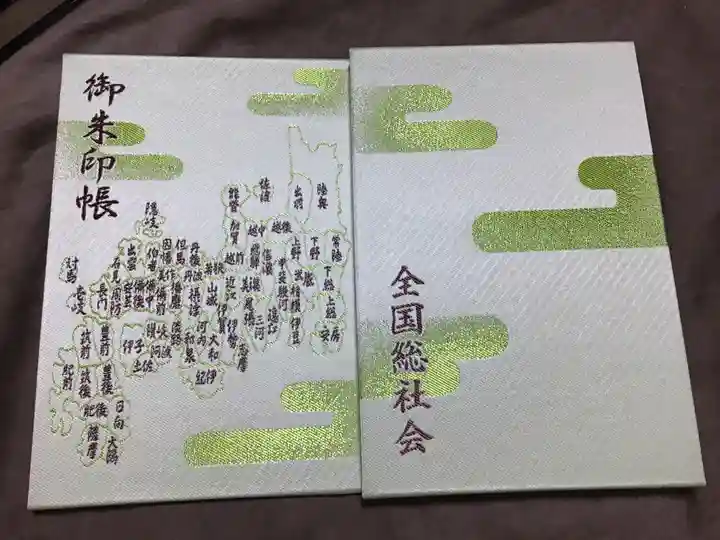 御朱印帳
陸奥
出羽
佐渡
能登
加賀
越中
越後
越前
飛騨
信濃
上野
下野
常陸
下総
上総
安房
武蔵
相模
伊豆
甲斐
駿河
遠江
三河
尾張
美濃
若狭
近江
山城
伊賀
伊勢
志摩
大和
紀伊
河内
和泉
摂津
丹波
丹後
但馬
播磨
淡路
因幡
美作
備前
伯耆
備中
備後
隠岐
出雲
石見
安芸
周防
長門
対馬
壱岐
讃岐
阿波
土佐
伊予
豊前
豊後
筑前
筑後
肥前
肥後
日向
大隅
薩摩
全国総社会